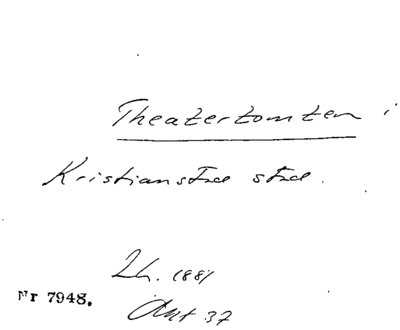 Theatertomten i
Kristianstad stad.
Lh. 1881
Nr 7948.
Akt 37